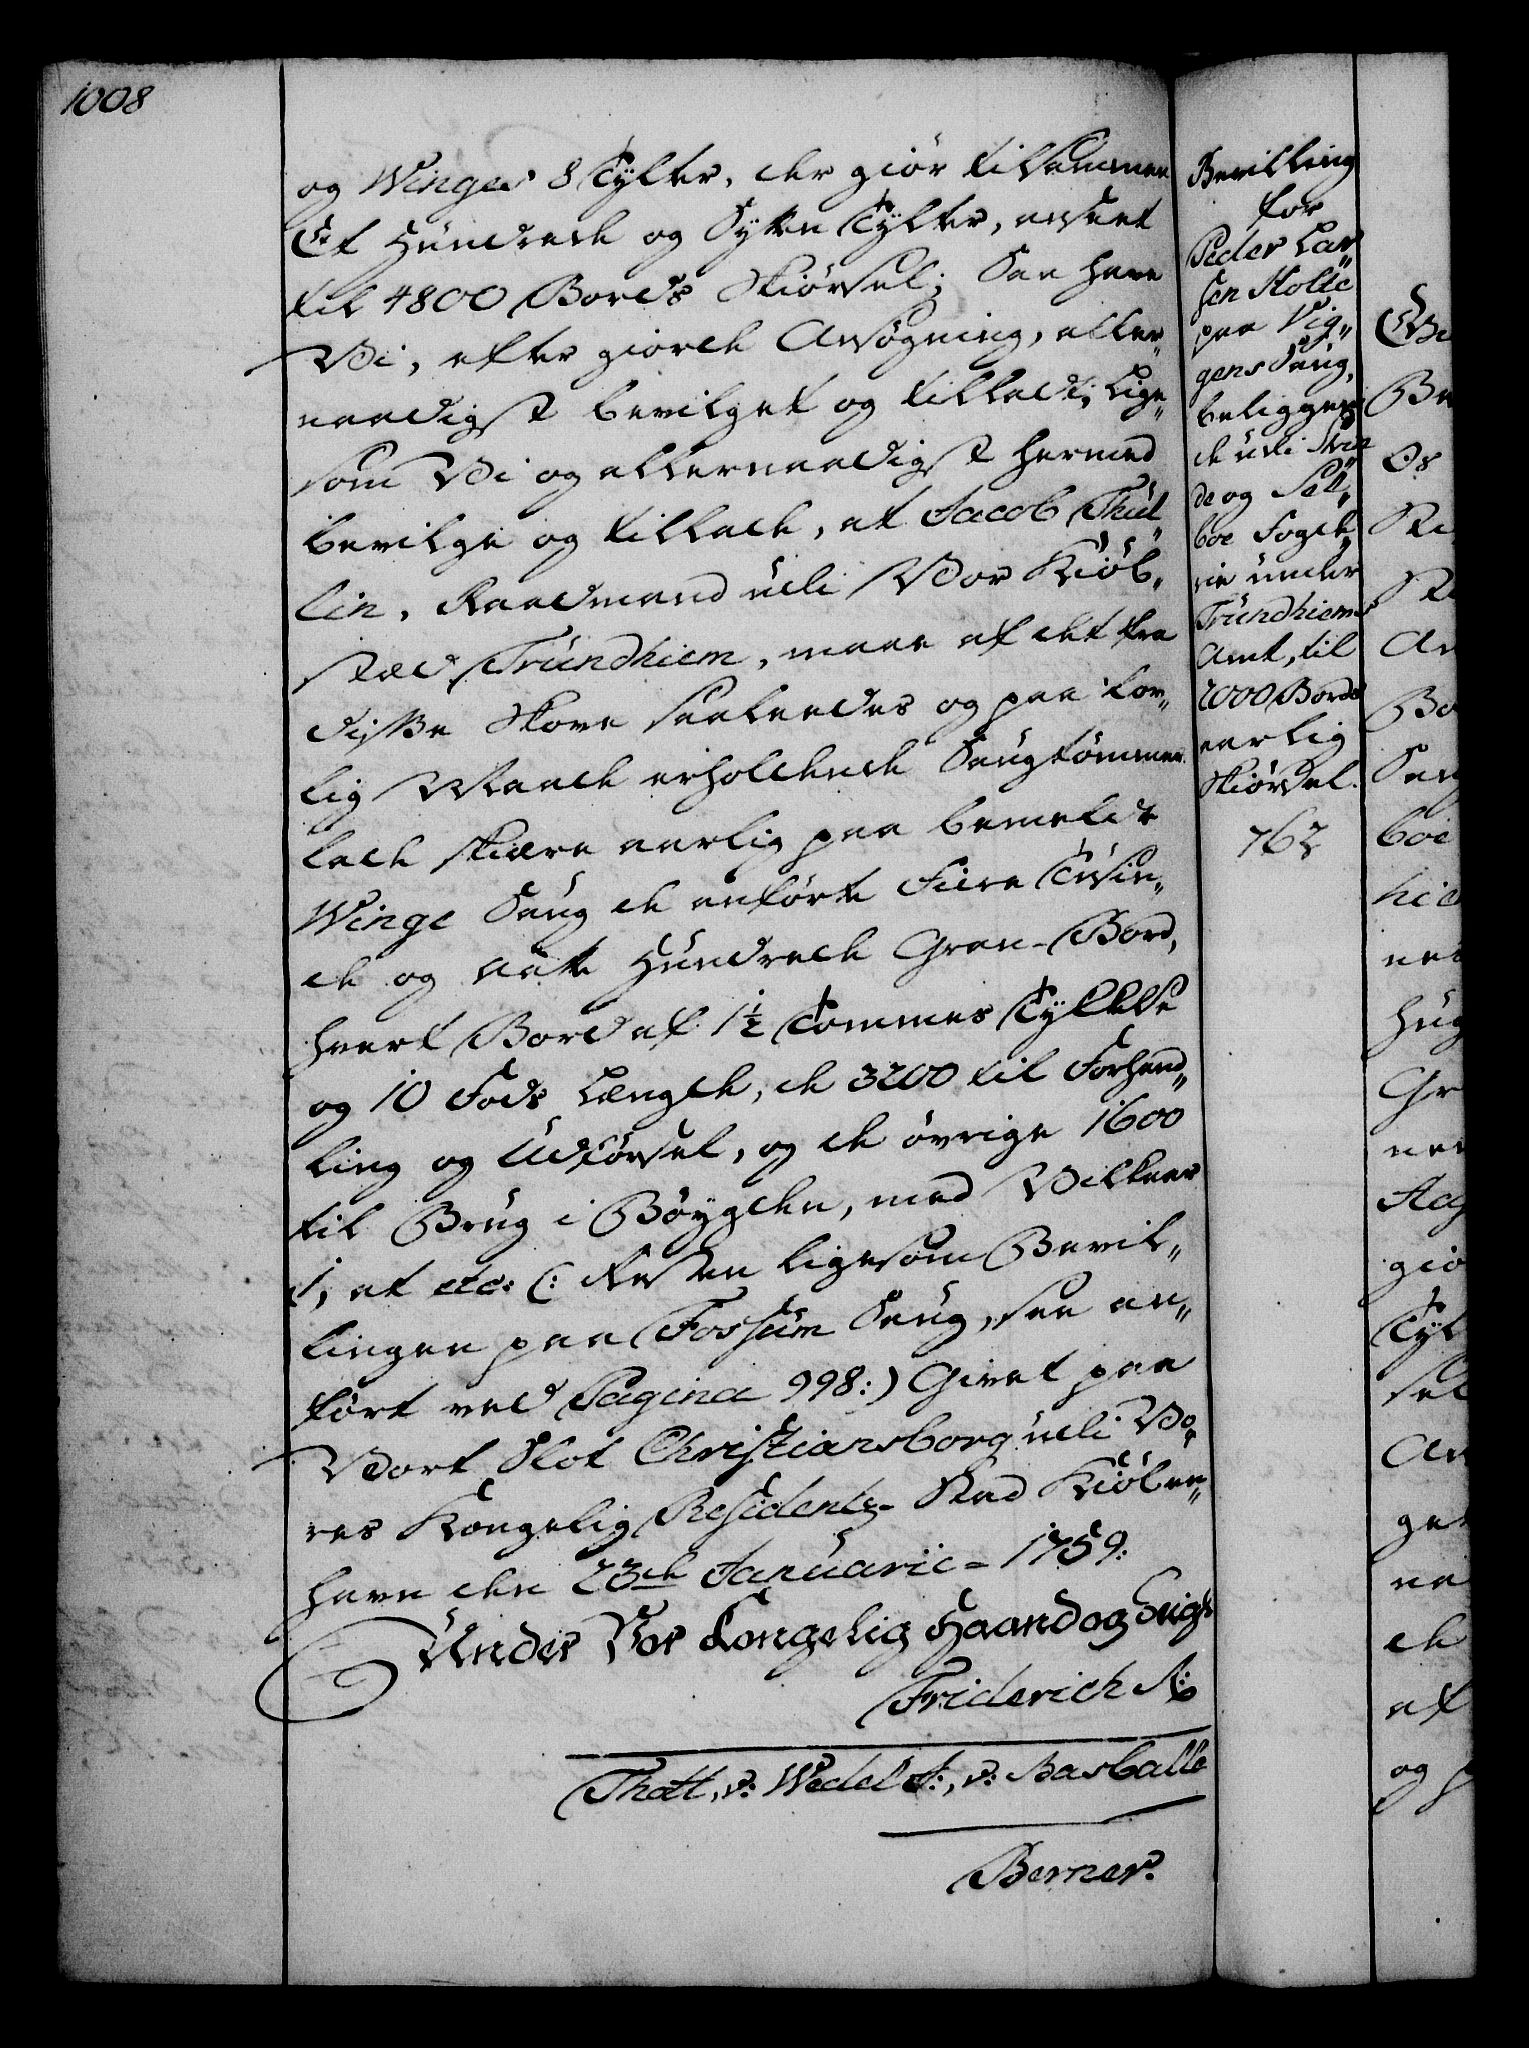 1008
og Winges 8 Tylter, der giör tilsammen
Et Hündrede og Sytten Tylter, anseet
til 4800 Bords Skiörsel; Saa have
Vi, efter giorde Ansögning, aller„
naadigst bevilget og tilladt, Lige„
som Vi og allernaadigst hermed
bevilge og tillade, at Jacob Thül„
lin, Raadmand udi Vor Kiöb„
stæd Tründhiem, maae af det fra
diße Skove saaledes og paa lov„
lig Maade erholdende Saugtömmer
lade skiære aarlig paa bemeldte
Winge Saug de anförte Fiire Tusin„
de og Aatte Hündrede Gran-Bord,
hvert Bord af 1½ Tommes Tykkelse
og 10 Fods Længde, de 3200 til Forhand„
ling og Udförsel, og de övrige 1600
til Brug i Böygden, med Vilkaar
1, at etc: (: Resten ligesom Bevil„
lingen paa Fossüm Saug, saa an„
fört ved Pagina 998:) Givet paa
Vort Slot Christiansborg udi Vo„
res Kongelig Residentz-Stad Kiöben„
havn den 23de Januarii = 1759:
Under Vor Kongelig Haand og Seigl
Friderich R:
Thott, v: Wedel F:, v: Basballe
Berner.
Bevilling
for
Peder Lar„
sen Holte
paa Vig„
gens Saug,
beliggen„
de udi Strin„
de og Sel„
boe Foged„
rie under
Tründhiems
Amt, til
2000 Bords
aarlig
Skiörsel.
762